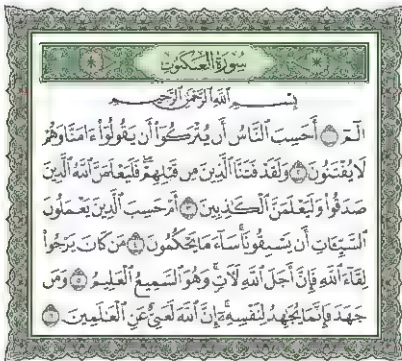 سُورَةُ العَنكَبُوتِ
بِسْمِ ٱللَّهِ ٱلرَّحْمَٰنِ ٱلرَّحِيمِ
الٓمٓ ۝١ أَحَسِبَ ٱلنَّاسُ أَن يُتْرَكُوٓا۟ أَن يَقُولُوٓا۟ ءَامَنَّا وَهُمْ
لَا يُفْتَنُونَ ۝٢ وَلَقَدْ فَتَنَّا ٱلَّذِينَ مِن قَبْلِهِمْ ۖ فَلَيَعْلَمَنَّ ٱللَّهُ ٱلَّذِينَ
صَدَقُوا۟ وَلَيَعْلَمَنَّ ٱلْكَٰذِبِينَ ۝٣ أَمْ حَسِبَ ٱلَّذِينَ يَعْمَلُونَ
ٱلسَّيِّـَٔاتِ أَن يَسْبِقُونَا ۚ سَآءَ مَا يَحْكُمُونَ ۝٤ مَن كَانَ يَرْجُوا۟
لِقَآءَ ٱللَّهِ فَإِنَّ أَجَلَ ٱللَّهِ لَءَاتٍ ۚ وَهُوَ ٱلسَّمِيعُ ٱلْعَلِيمُ ۝٥ وَمَن
جَٰهَدَ فَإِنَّمَا يُجَٰهِدُ لِنَفْسِهِۦٓ ۚ إِنَّ ٱللَّهَ لَغَنِىٌّ عَنِ ٱلْعَٰلَمِينَ ۝٦